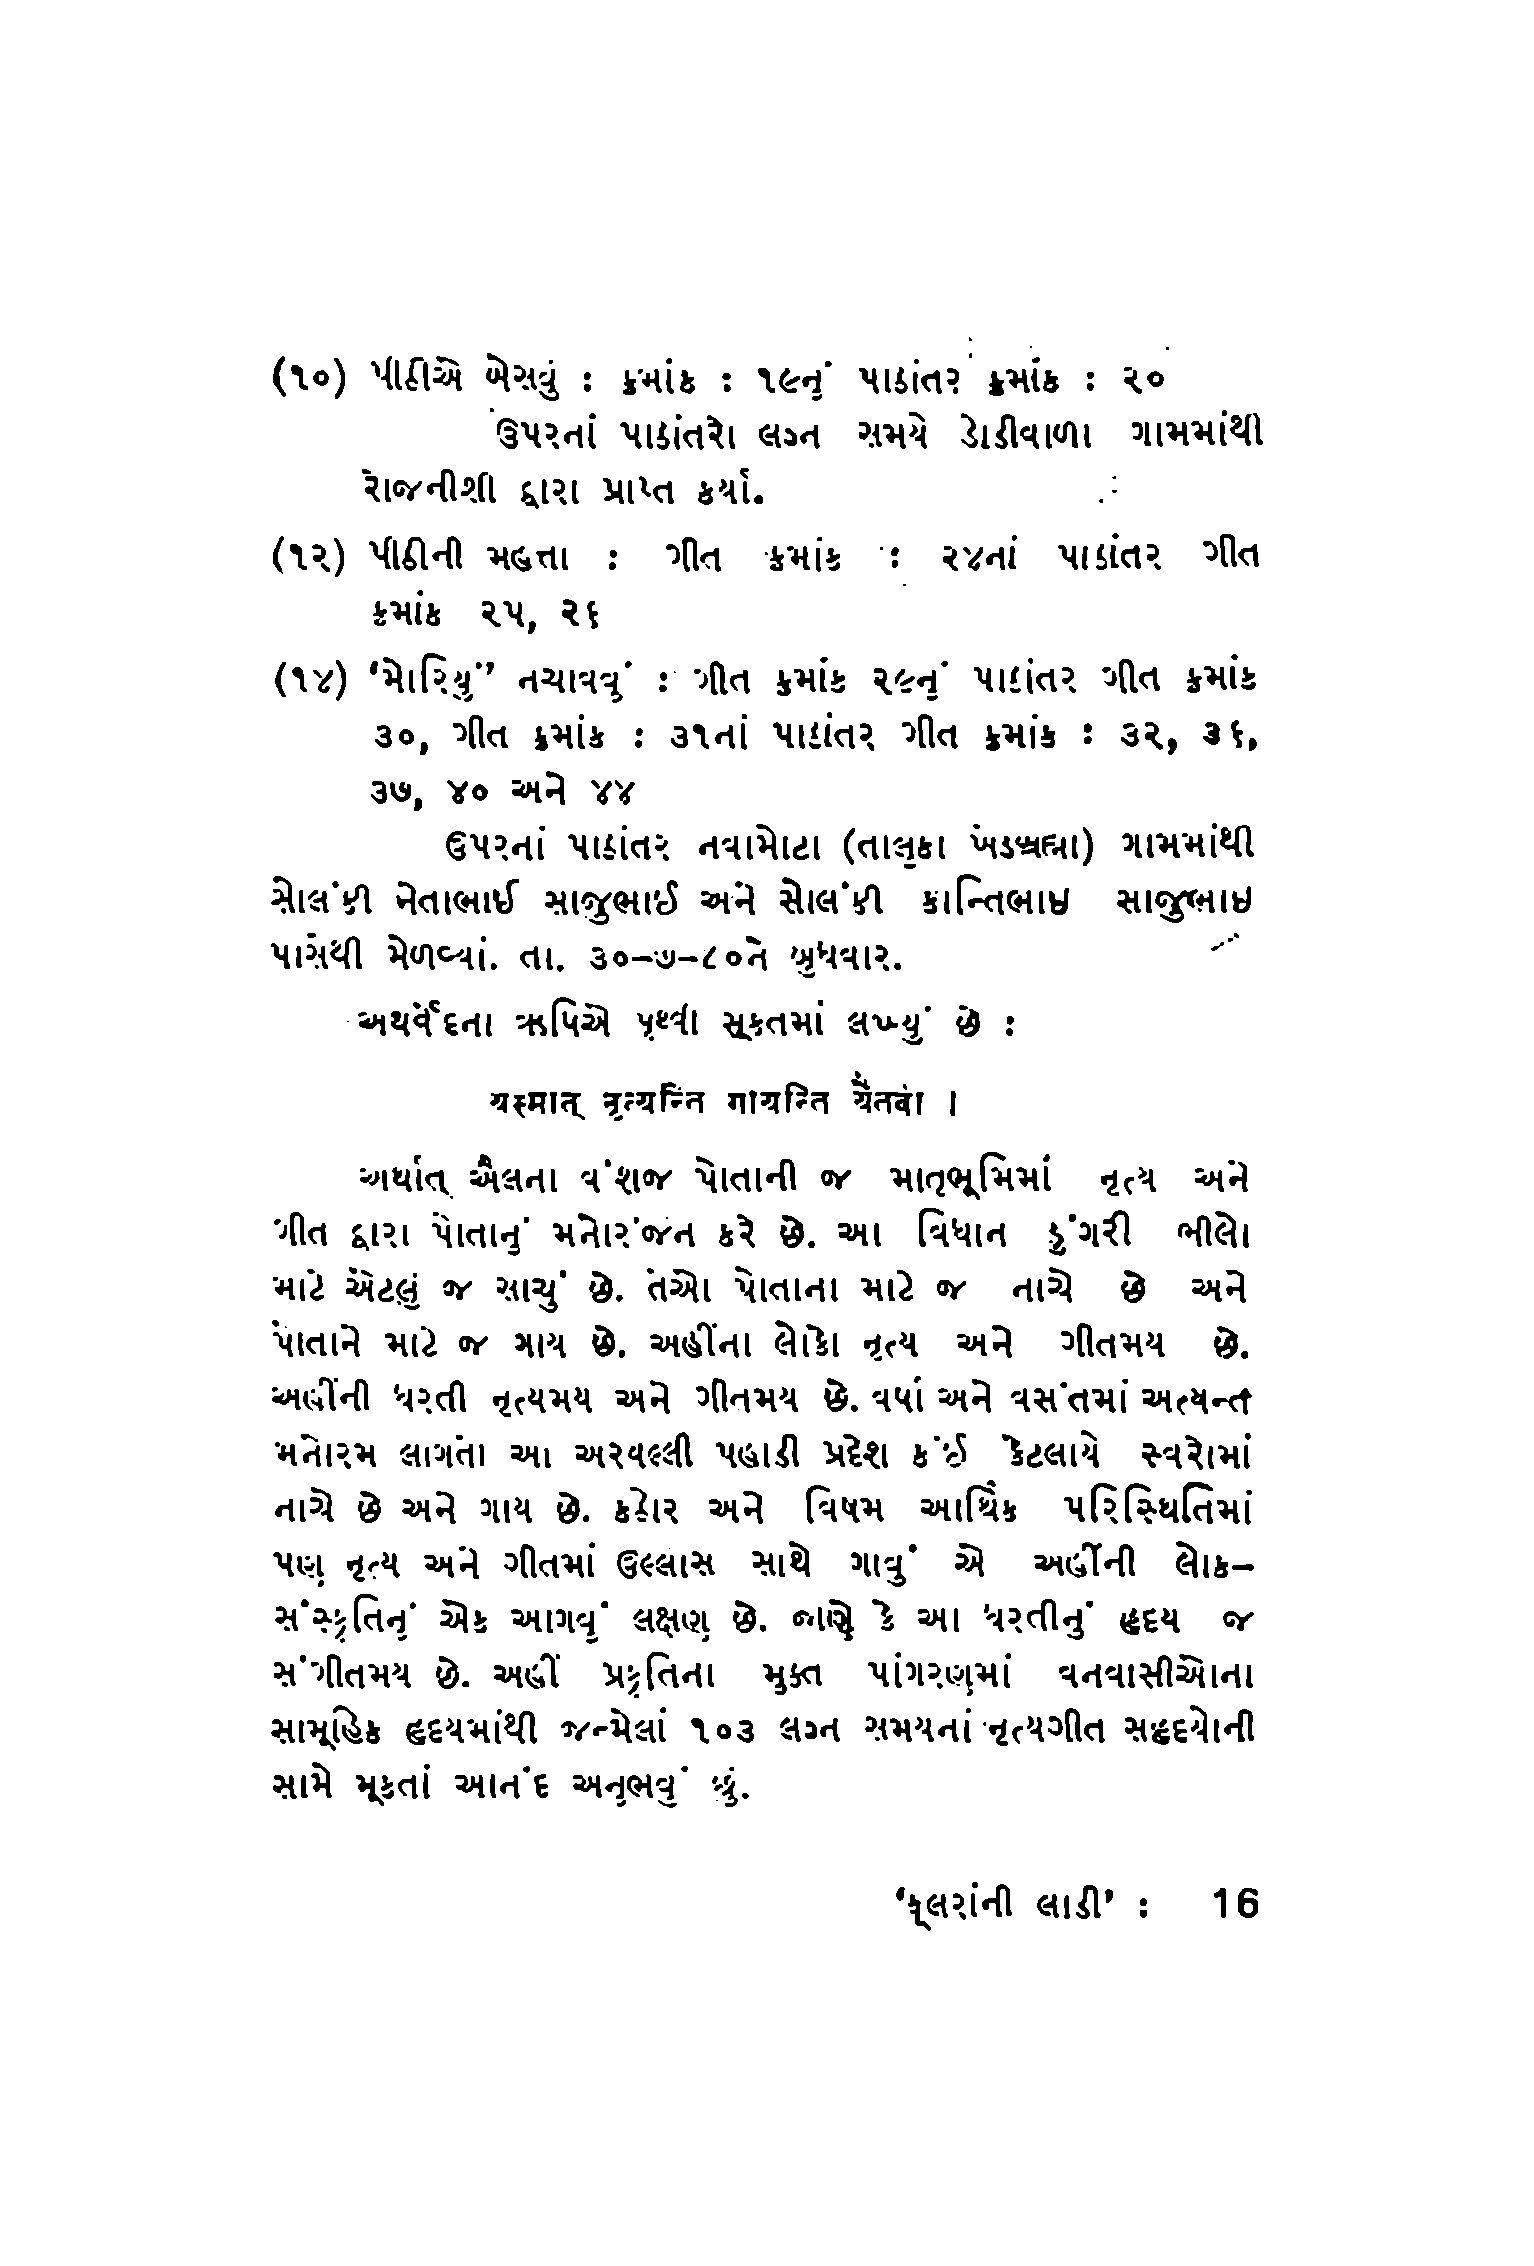 (૧૦) પીઠીએ બેસવું : ક્રમાંક : ૧૯નું પાઠાંતર ક્રમાંક : ૨૦
ઉપરનાં પાઠાંતરો લગ્ન સમયે ડોડીવાળા ગામમાંથી
રોજનીશી દ્વારા પ્રાપ્ત કર્યાં.
(૧૨) પીઠીની મહત્તા : ગીત ક્રમાંક : ૨૪નાં પાઠાંતર ગીત
ક્રમાંક ૨૫, ૨૬
(૧૪) ‘મોરિયું’ નચાવવું : ગીત ક્રમાંક ૨૯નું પાઠાંતર ગીત ક્રમાંક
૩૦, ગીત ક્રમાંક : ૩૧નાં પાઠાંતર ગીત ક્રમાંક : ૩૨, ૩૬,
૩૭, ૪૦ અને ૪૪
ઉપરનાં પાઠાંતર નવામોટા (તાલુકા ખેડબ્રહ્મા) ગામમાંથી
સોલંકી નેતાભાઈ સાજુભાઈ અને સોલંકી કાન્તિભાઇ સાજુભાઇ
પાસેથી મેળવ્યાં. તા. ૩૦-૭-૮૦ને બુધવાર.
અથર્વેદના ઋષિએ પૃથ્વી સૂક્તમાં લખ્યું છે :
यस्मात् नृत्यन्ति गायन्ति यैतवां ।
અર્થાત્ ઐલના વંશજ પોતાની જ માતૃભૂમિમાં નૃત્ય અને
ગીત દ્વારા પોતાનું મનોરંજન કરે છે. આ વિધાન ડુંગરી ભીલો
માટે એટલું જ સાચું છે. તેઓ પોતાના માટે જ નાચે છે અને
પોતાને માટે જ ગાય છે. અહીંના લોકો નૃત્ય અને ગીતમય છે.
અહીંની ધરતી નૃત્યમય અને ગીતમય છે. વર્ષા અને વસંતમાં અત્યન્ત
મનોરમ લાગતો આ અરવલ્લી પહાડી પ્રદેશ કંઈ કેટલાયે સ્વરોમાં
નાચે છે અને ગાય છે. કઠોર અને વિષમ આર્થિક પરિસ્થિતિમાં
પણ નૃત્ય અને ગીતમાં ઉલ્લાસ સાથે ગાવું એ અહીંની લોક-
સંસ્કૃતિનું એક આગવું લક્ષણ છે. જાણે કે આ ધરતીનું હૃદય જ
સંગીતમય છે. અહીં પ્રકૃતિના મુક્ત પાંગરણમાં વનવાસીઓના
સામૂહિક હૃદયમાંથી જન્મેલાં ૧૦૩ લગ્ન સમયનાં નૃત્યગીત સહૃદયોની
સામે મૂકતાં આનંદ અનુભવું છું.
‘ફૂલરાંની લાડી’ : 16